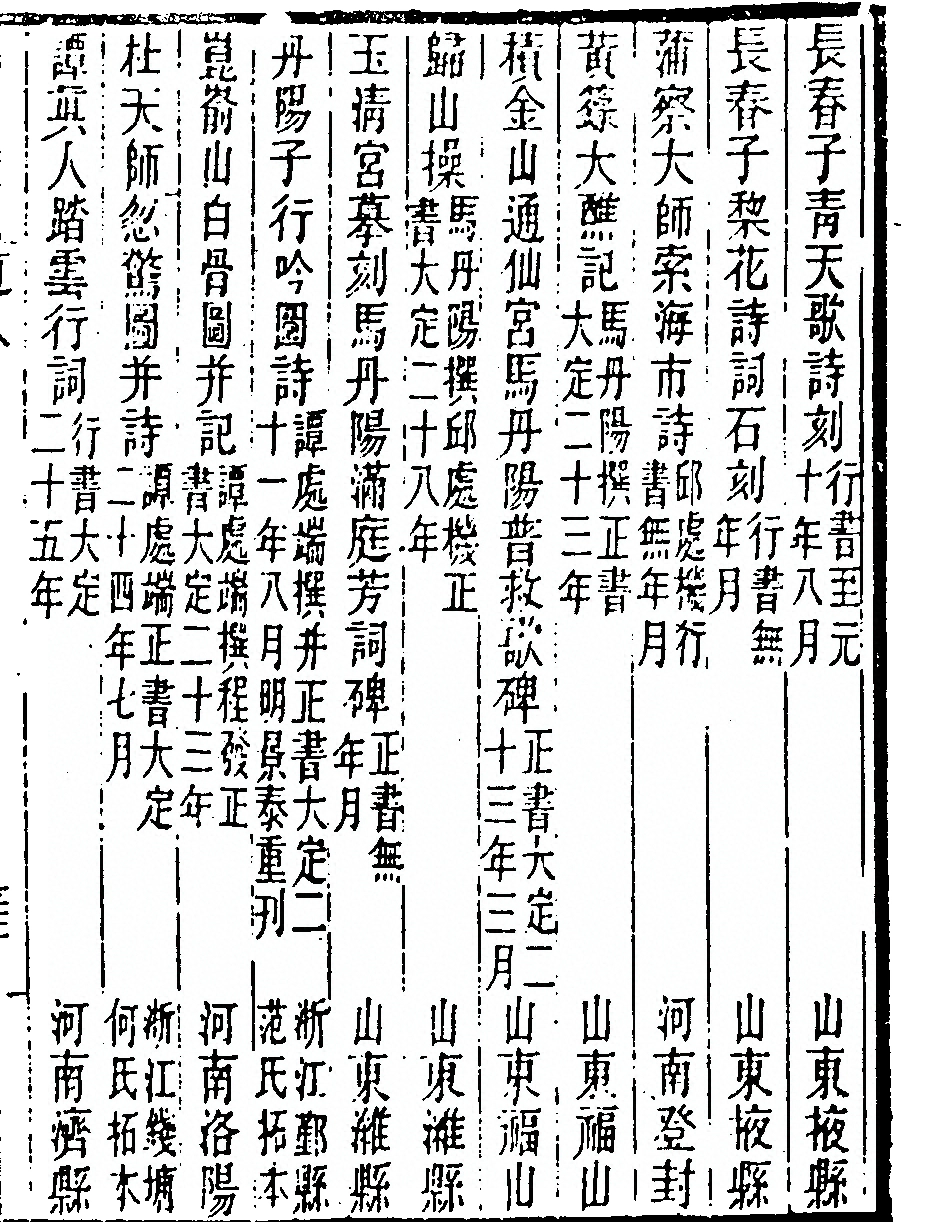 長春子青天歌詩刻行書至元十年八月　山東掖縣
長春子棃花詩詞石刻行書無年月　山東掖縣
蒲察大師索海市詩邱處機行書無年月　河南登封
黃籙大醮記馬丹陽撰正書大定二十三年　山東福山
積金山通仙宮馬丹陽普救歌碑正書大定二十三年三月　山東福山
歸山操馬丹陽撰邱處機正書大定二十八年　山東濰縣
玉清宮摹刻馬丹陽滿庭芳詞碑正書無年月　山東濰縣
丹陽子行吟圖詩譚處端撰并正書大定二十一年八月明景泰重刊　浙江鄞縣范氏拓本
崑嵛山白骨圖并記譚處端撰程發正書大定二十三年　河南洛陽
杜天師忽驚圖并詩譚處端正書大定二十四年七月　浙江錢塘何氏拓本
譚真人踏雲行詞行書大定二十五年　河南濟縣